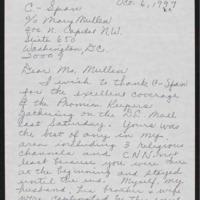 Oct. 6, 1997
C-Span
c/o Mary Mullen
400 N. Capitol N.W.
Suite 650
Washington D.C.
20009
Dear Ms. Mullen:
I wish to thank C-Span
for the excellent coverage
of the Promise Keepers
gathering on the D.C. Mall
last Saturday. Yours was
the best of any in my
area including 3 religious
channels and CNN. not
least because you were there
at the beginning and stayed
until the end. Myself, my
husband, his brother & wife
were